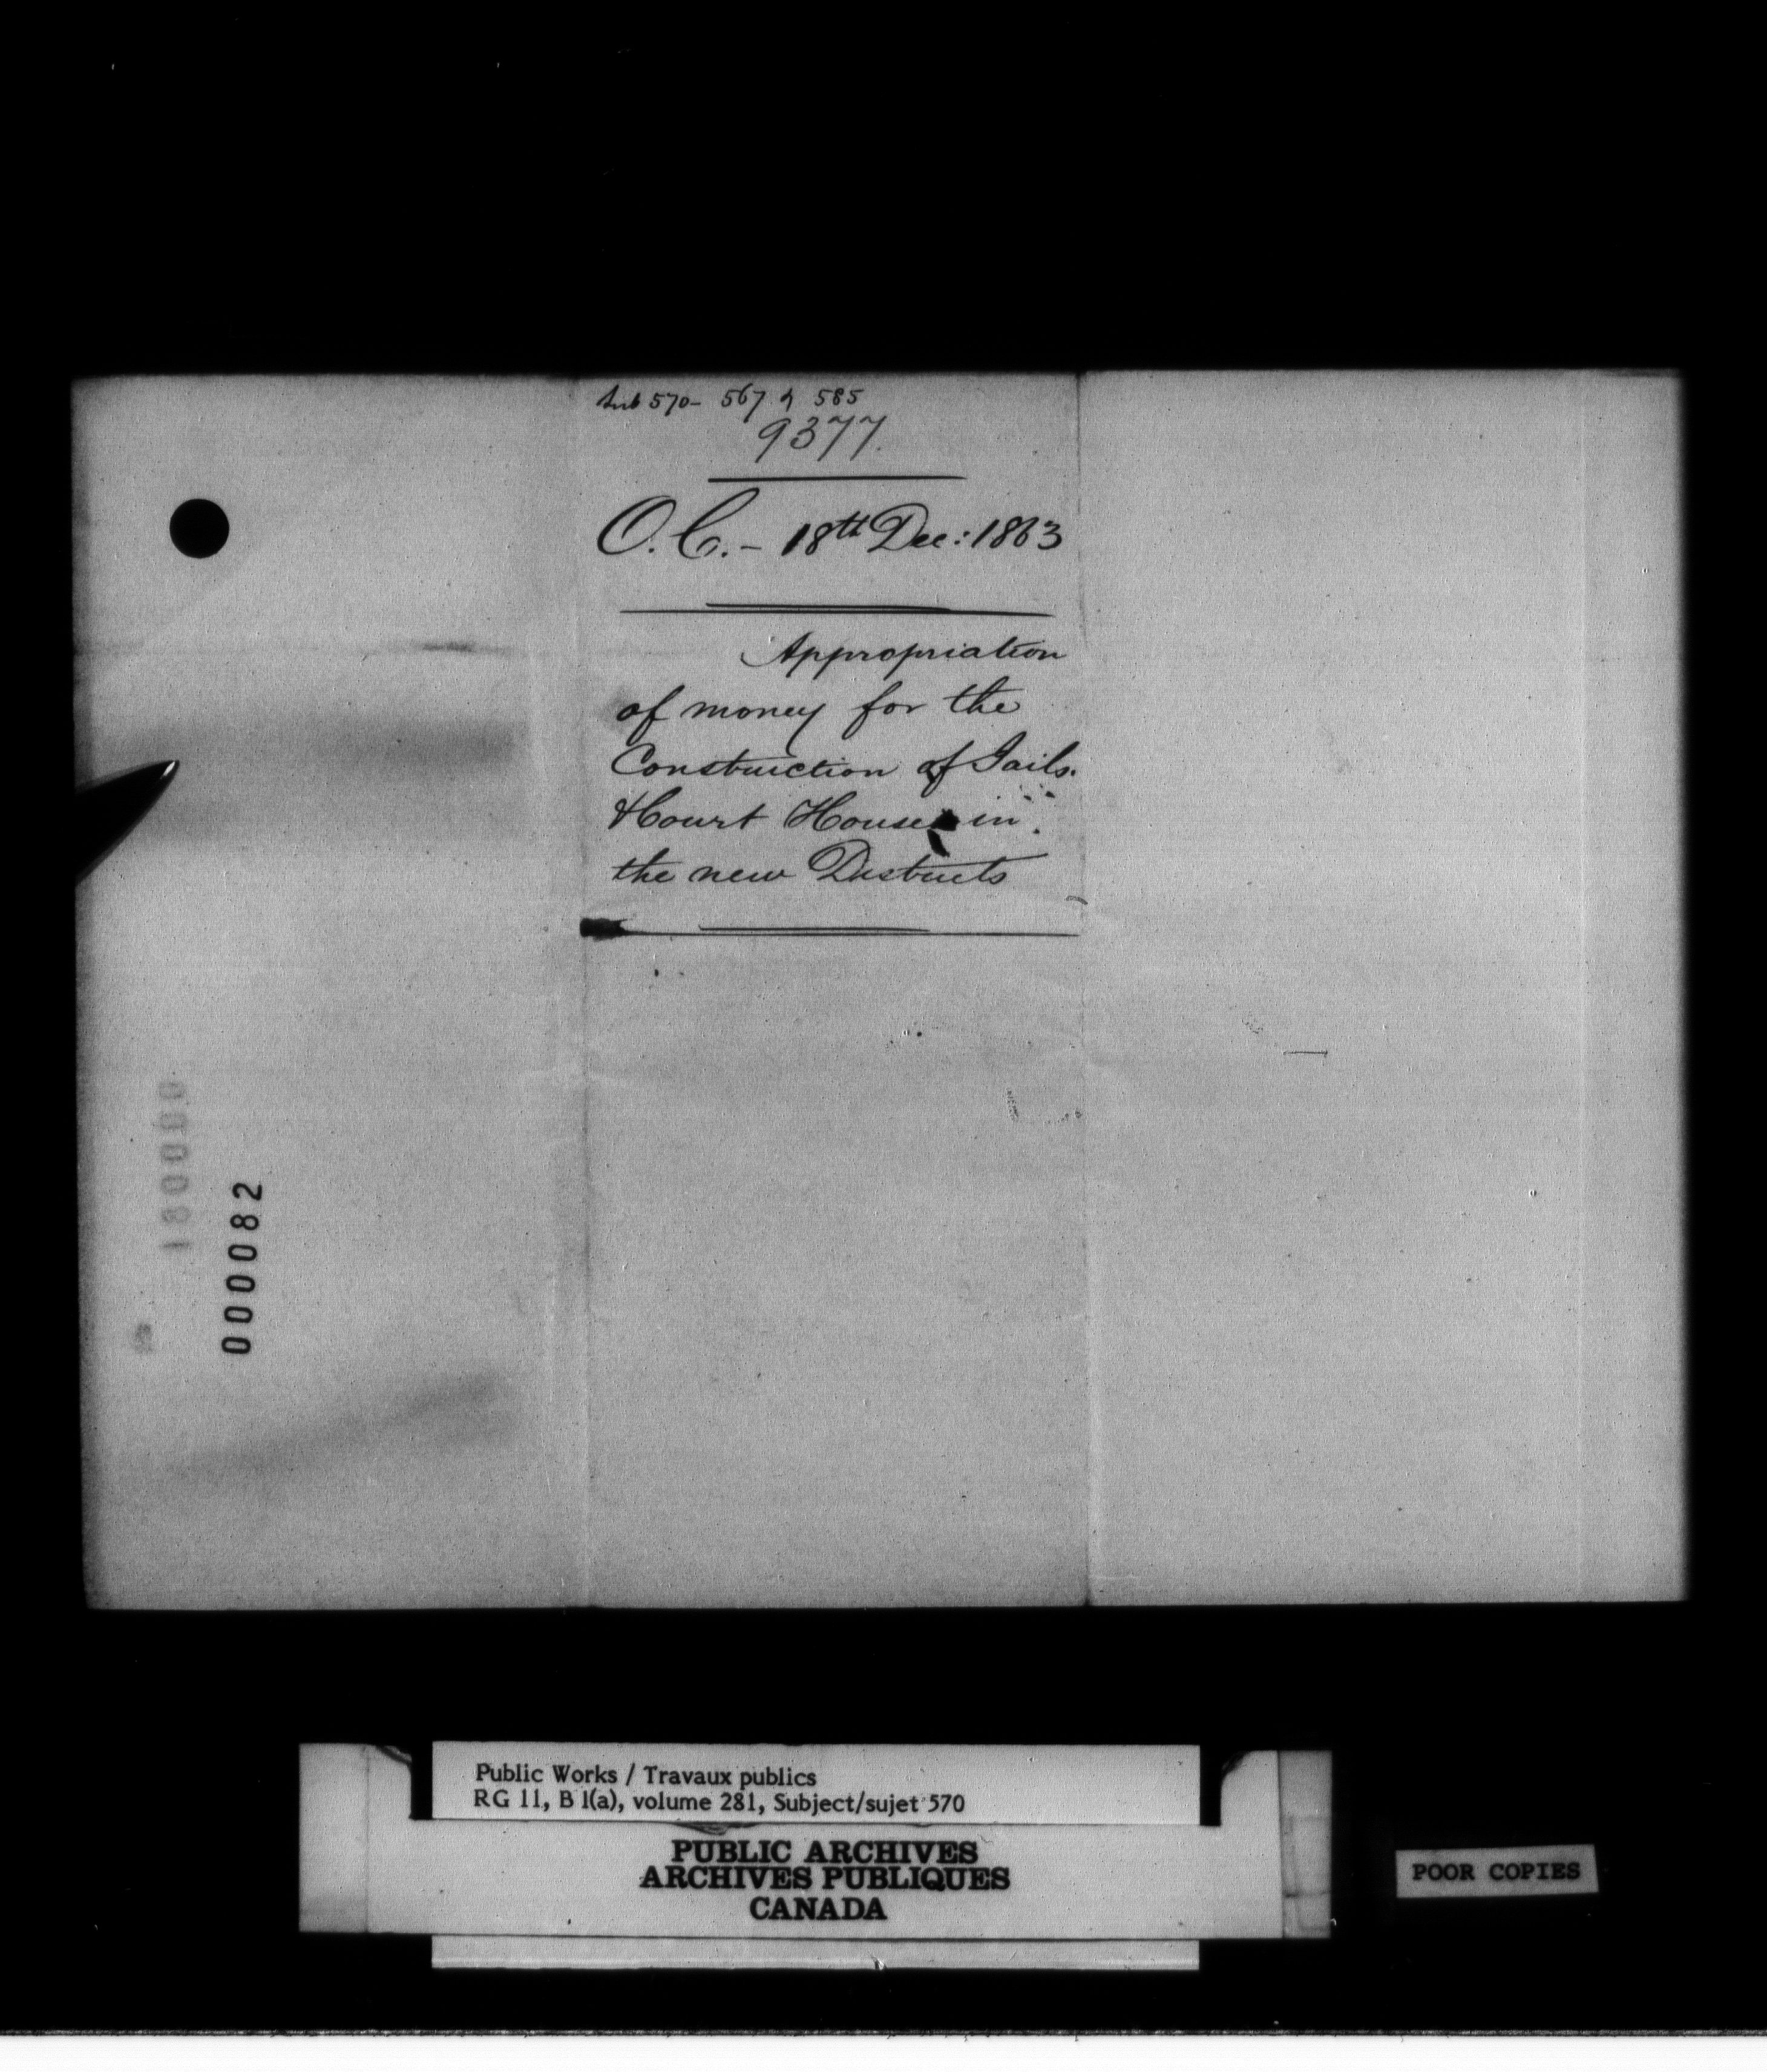 Sub 570 - 567 & 585
9377.
O.C. - 18th Dec: 1863
Appropriation
of money for the
Construction of Jails.
& Court Houses in
the new Districts
000081
000082
Public Works / Travaux publics
RG 11, B 1(a), volume 281, Subject/sujet 570
PUBLIC ARCHIVES
ARCHIVES PUBLIQUES
CANADA
POOR COPIES